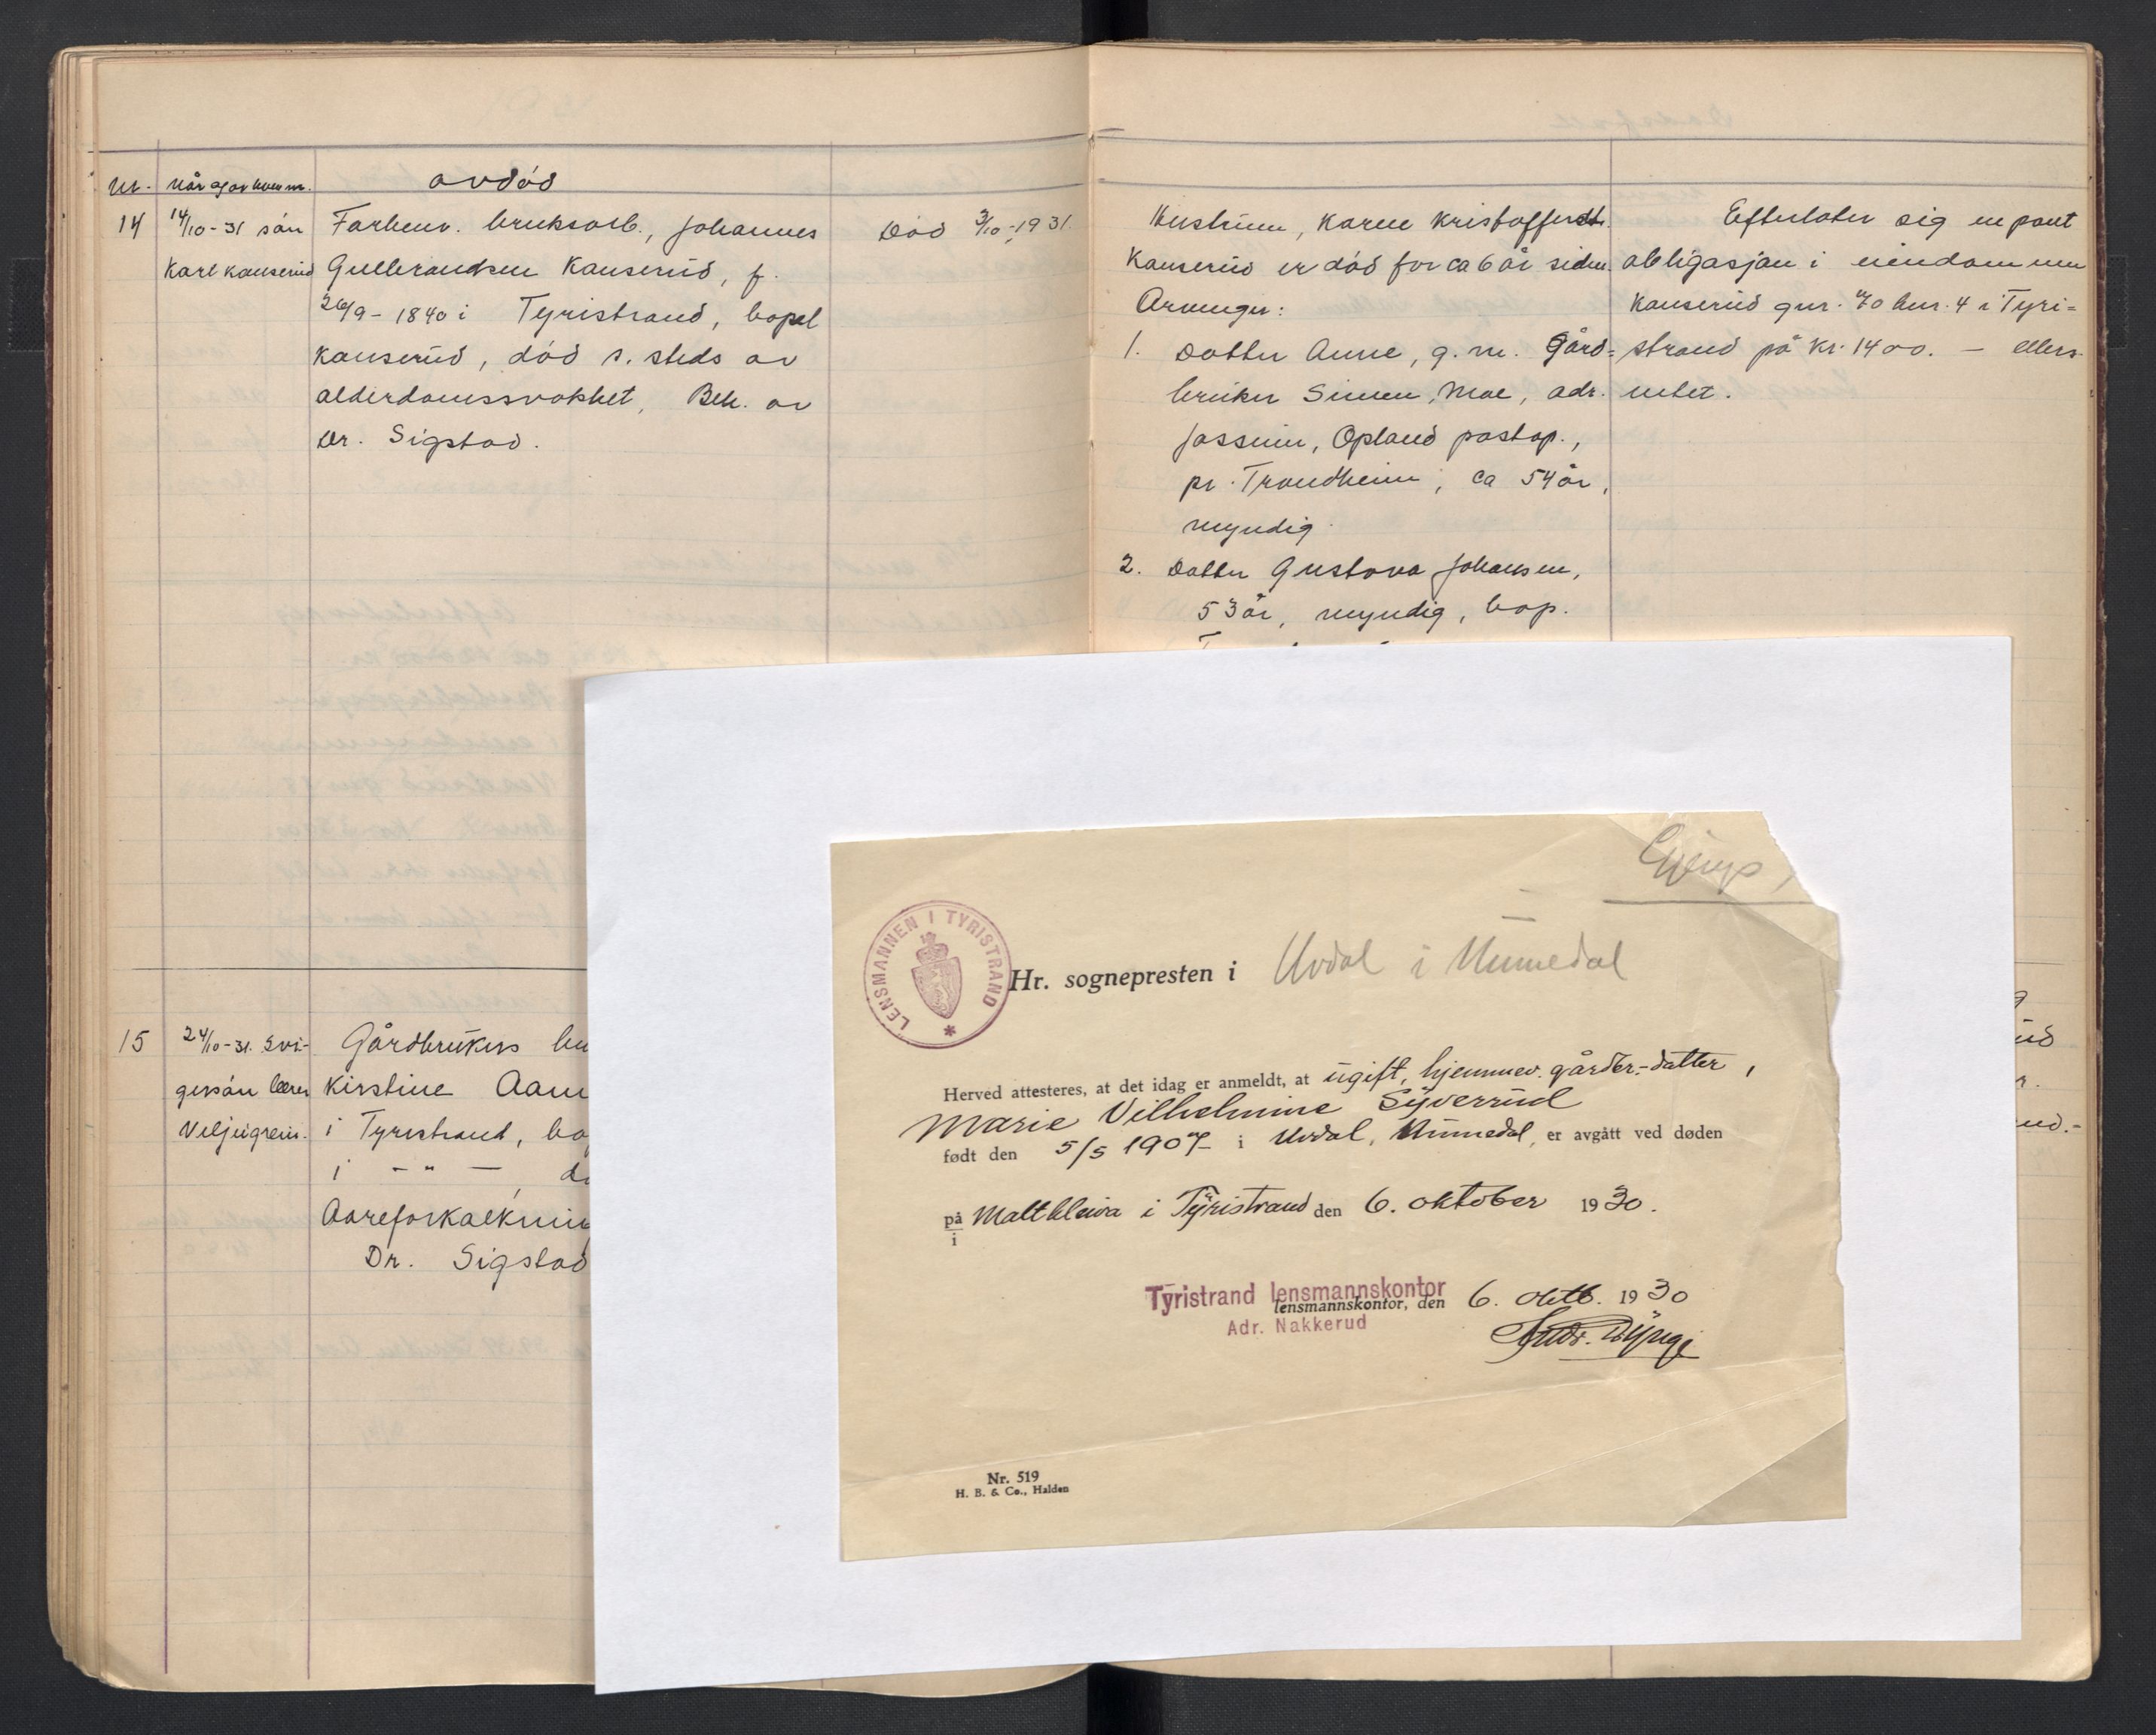 Nr. når og av hvem m. avdöd
14 14/10-31 sön Forhenv. bruksarb., Johannes Död 3/10-1931.
Karl Kanserud Gulbrandsen Kanserud, f.
26/9-1840 i Tyristrand, bopel
Kanserud, död s. steds av
alderdomssvakhet, Beh. av
Dr. Sigstad.
Hustruen, Karen Kristoffersdt.
Kanserud er död for ca 6 år siden.
Arvinger:
1. Datter Anne, g. m. Gård=
bruker Simen Moe, adr.
Jassum, Opland postop.,
pr. Trondheim, ca 54 år,
myndig.
2. Datter Gustava Johansen,
53 år, myndig, bop.
Efterlater sig en pant
obligasjon i eiendommen
Kanserud gnr. 70 bnr. 4 i Tyri=
strand på kr. 1400. - ellers
intet.
15 24/10-31. Svi- Gårdbrukers
gersön lærer Kirstine
Veljugrein. i Tyristrand,
i - " -
Aareforkalkning
Dr. Sigstad
LENSMANNEN I TYRISTRAND *
Hr. sognepresten i Uvdal i Numedal
Herved attesteres, at det idag er anmeldt, at ugift, hjemmev. gårdbr.-datter,
Marie Vilhelmine Syverrud
født den 5/5 1907 i Uvdal, Numedal, er avgått ved døden
på/i Maltkleiva i Tyristrand den 6. oktober 1930.
Tyristrand lensmannskontor
lensmannskontor, den 6. oktb. 1930
Adr. Nakkerud
Nr. 519
H. B. & Co., Halden